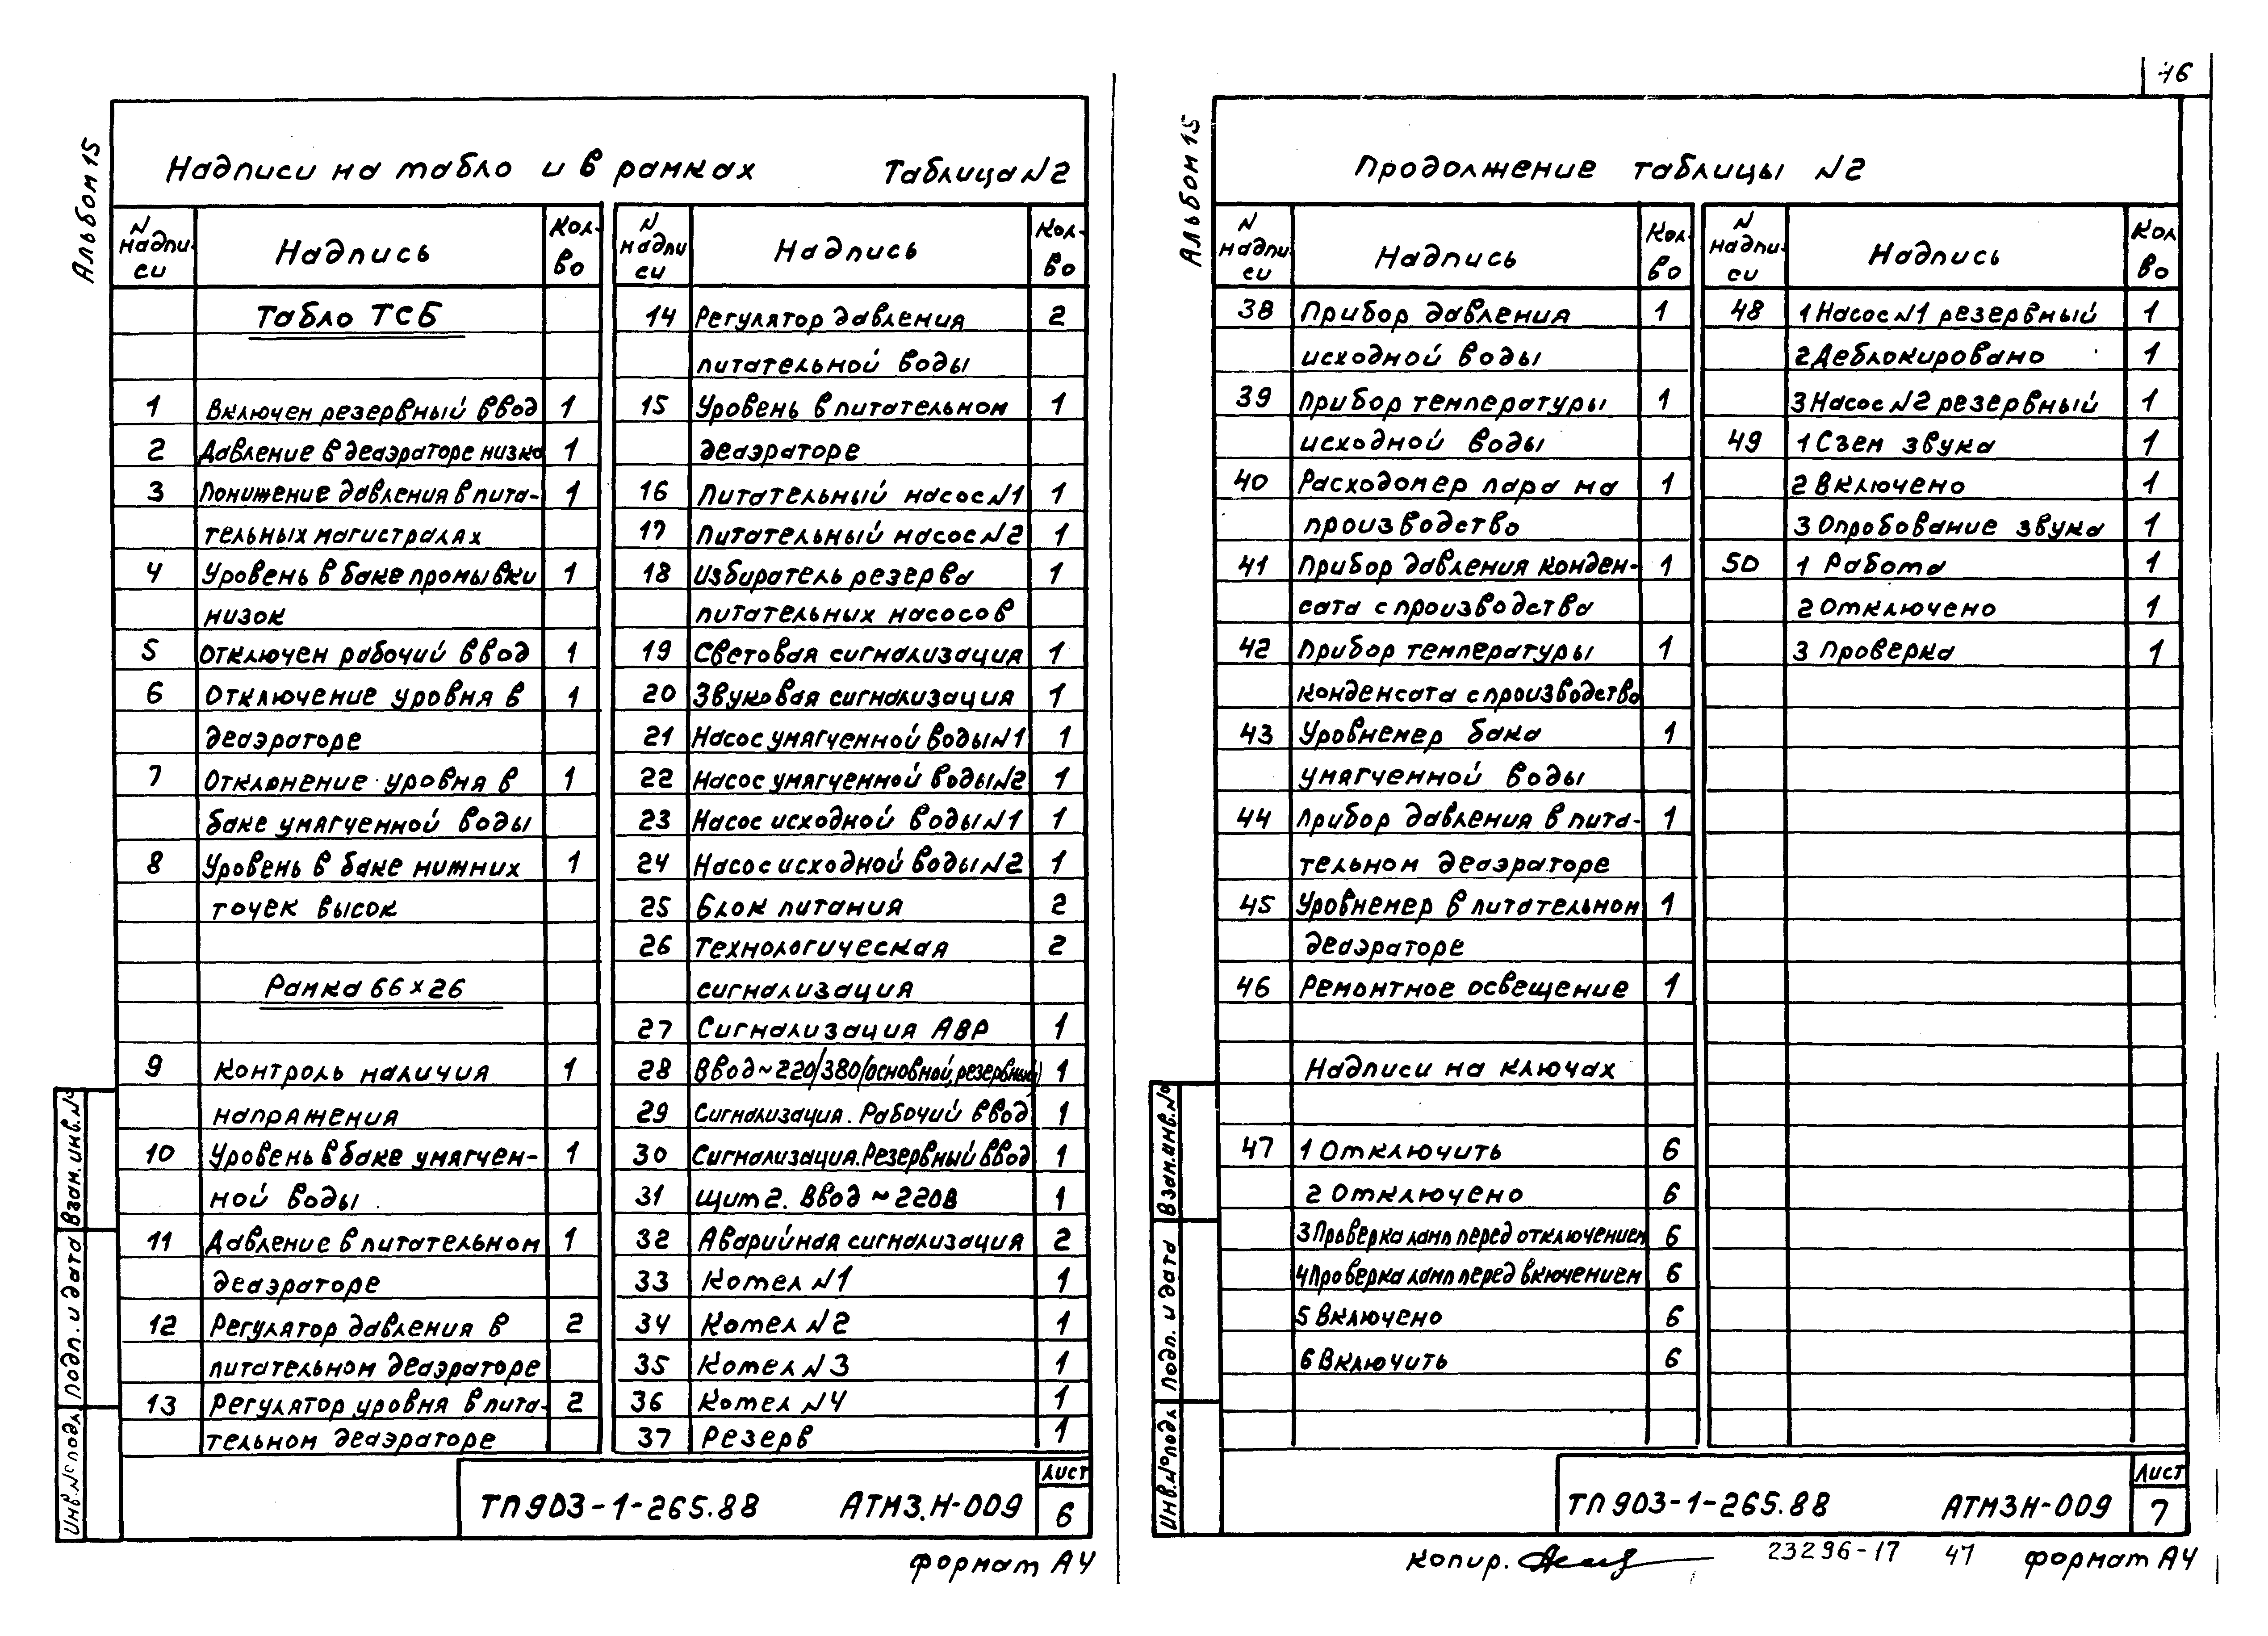 46
Альбом 15
Надписи на табло и в рамках Таблица N2
N надписи Надпись Кол-во
Табло ТСБ
1 Включен резервный ввод 1
2 Давление в деаэраторе низко 1
3 Понижение давления в пита- 1
тельных магистралях
4 Уровень в баке промывки 1
низок
5 Отключен рабочий ввод 1
6 Отключение уровня в 1
деаэраторе
7 Отклонение уровня в 1
баке умягченной воды
8 Уровень в баке нижних 1
точек высок
Рамка 66×26
9 Контроль наличия 1
напряжения
10 Уровень в баке умягчен- 1
ной воды
11 Давление в питательном 1
деаэраторе
12 Регулятор давления в 2
питательном деаэраторе
13 Регулятор уровня в пита- 2
тельном деаэраторе
N надписи Надпись Кол-во
14 Регулятор давления 2
питательной воды
15 Уровень в питательном 1
деаэраторе
16 Питательный насос N1 1
17 Питательный насос N2 1
18 Избиратель резерва 1
питательных насосов
19 Световая сигнализация 1
20 Звуковая сигнализация 1
21 Насос умягченной воды N1 1
22 Насос умягченной воды N2 1
23 Насос исходной воды N1 1
24 Насос исходной воды N2 1
25 Блок питания 2
26 Технологическая 2
сигнализация
27 Сигнализация АВР 1
28 Ввод ~220/380/основной, резервный) 1
29 Сигнализация. Рабочий ввод 1
30 Сигнализация. Резервный ввод 1
31 Щит 2. Ввод ~220В 1
32 Аварийная сигнализация 2
33 Котел N1 1
34 Котел N2 1
35 Котел N3 1
36 Котел N4 1
37 Резерв 1
Взам.инв.№
Подп. и дата
Инв.№подл
ТП 903-1-265.88 АТМ3.Н-009
Лист
6
Формат А4
Альбом 15
Продолжение таблицы N2
N надписи Надпись Кол-во
38 Прибор давления 1
исходной воды
39 Прибор температуры 1
исходной воды
40 Расходомер пара на 1
производство
41 Прибор давления конден- 1
сата с производства
42 Прибор температуры 1
конденсата с производства
43 Уровнемер бака 1
умягченной воды
44 Прибор давления в пита- 1
тельном деаэраторе
45 Уровнемер в питательном 1
деаэраторе
46 Ремонтное освещение 1
Надписи на ключах
47 1 Отключить 6
2 Отключено 6
3 Проверка ламп перед отключением 6
4 Проверка ламп перед включением 6
5 Включено 6
6 Включить 6
N надписи Надпись Кол во
48 1 Насос N1 резервный 1
2 Деблокировано 1
3 Насос N2 резервный 1
49 1 Съем звука 1
2 Включено 1
3 Опробование звука 1
50 1 Работа 1
2 Отключено 1
3 Проверка 1
Взам.инв.№
Подп. и дата
Инв.№подл
ТП 903-1-265.88 АТМ3Н-009
Лист
7
Копир. 23296-17 47 Формат А4